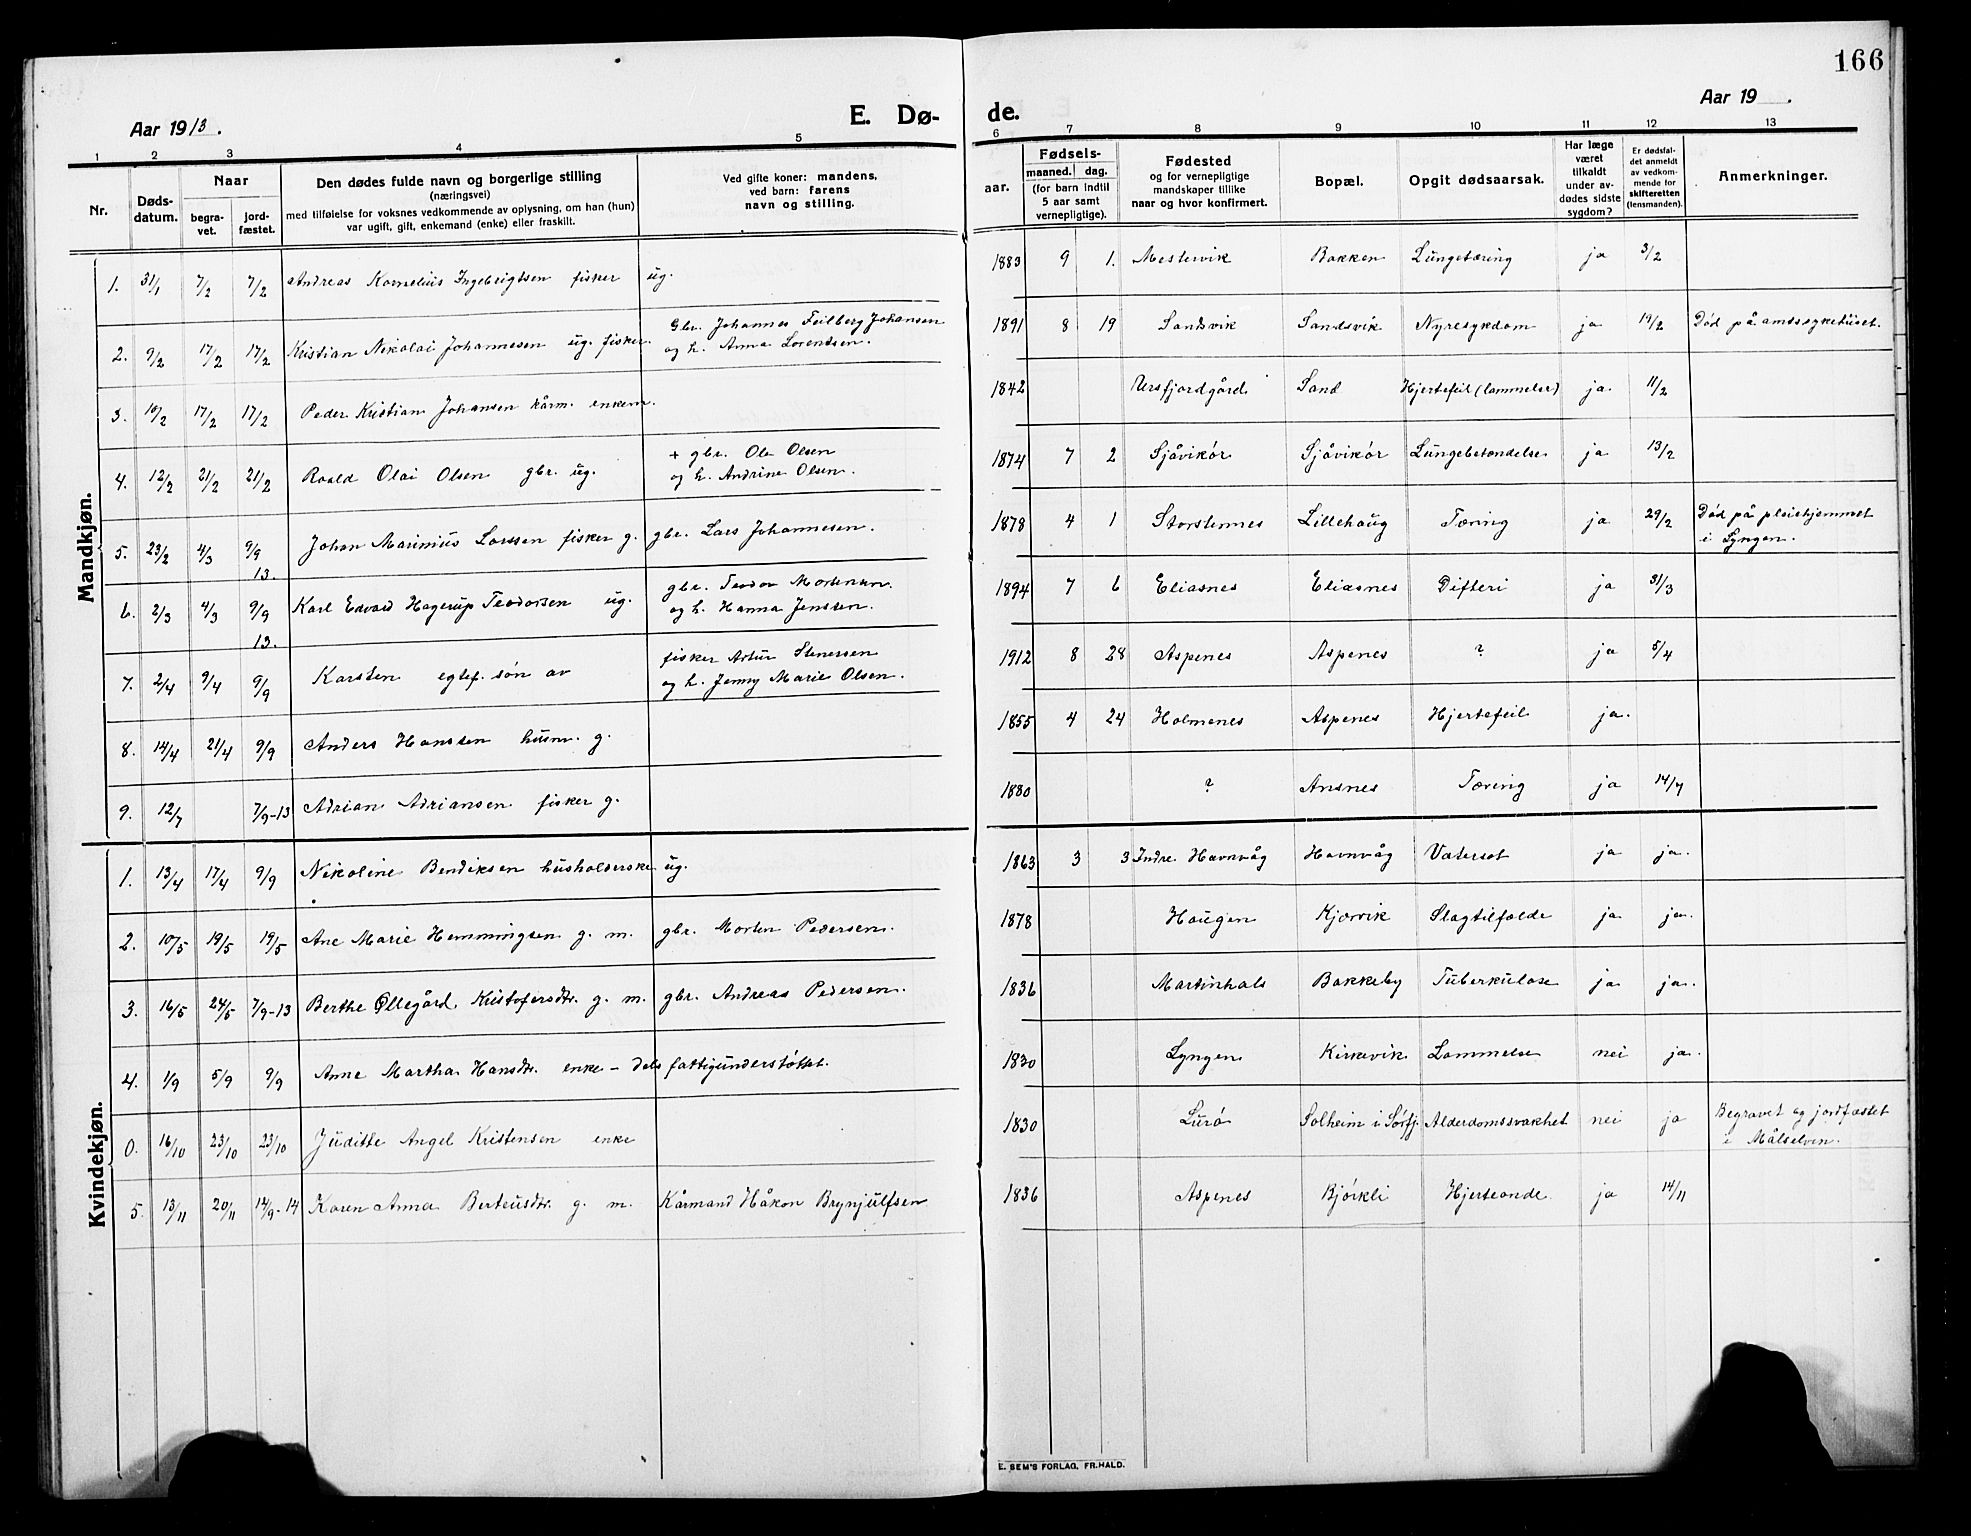 166
Aar 1913.
E. Dø-
de.
Aar 19 .
1 2 3 4 5 6 7 8 9 10 11 12 13
Nr.
Døds-
datum.
Naar
begra-
vet.
jord-
fæstet.
Den dødes fulde navn og borgerlige stilling
(næringsvei)
med tilføielse for voksnes vedkommende av oplysning, om han (hun)
var ugift, gift, enkemand (enke) eller fraskilt.
Ved gifte koner: mandens,
ved barn: farens
navn og stilling.
aar.
Fødsels-
maaned. dag.
(for barn indtil
5 aar samt
vernepligtige).
Fødested
og for vernepligtige
mandskaper tillike
naar og hvor konfirmert.
Bopæl.
Opgit dødsaarsak.
Har læge
været
tilkaldt
under av-
dødes sidste
sygdom?
Er dødsfal-
det anmeldt
av vedkom-
mende for
skifteretten
(lensmanden).
Anmerkninger.
Mandkjøn.
1. 31/1 7/2 7/2 Andreas Kornelius Ingebrigtsen fisker ug. 1883 9 1. Mestervik Bakken Lungetæring ja 3/2
2. 9/2 17/2 17/2 Kristian Nikolai Johannesen ug. fisker. Gbr. Johannes Feilberg Johansen
og h. Anna Lorentsen. 1891 8 19 Sandsvik Sandsvik Nyresykdom ja 19/2 Død på amtssykehuset.
3. 10/2 17/2 17/2 Peder Kristian Johansen kårm. enkem. 1842 Ursfjordgård Sand Hjertefeil (lammelse) ja. 11/2
4. 12/2 21/2 21/2 Roald Olai Olsen gbr. ug. + gbr. Ole Olsen
og h. Andrine Olsen. 1874 7 2 Sjåvikør Sjåvikør Lungebetændelse ja 13/2
5. 23/2 4/3 9/9 13. Johan Marinius Larssen fisker g. gbr. Lars Johannesen. 1878 4 1 Storstennes Lillehaug Tæring ja 29/2 Død på pleiehjemmet
i Lyngen.
6. 2/3 4/3 9/9 13. Karl Edvard Hagerup Teodorsen ug. gbr. Teodor Mortensen.
og h. Hanna Jenssen. 1894 7 6 Eliasnes Eliasnes Difteri ja 31/3
7. 2/4 9/4 9/9 Karsten egtef. søn av fisker Artur Stenersen
og h. Jenny Marie Olsen. 1912 8 28 Aspenes Aspenes ? ja 5/4
8. 14/4 21/4 9/9 Anders Hanssen husm. g. 1855 4 24 Holmenes Aspenes Hjertefeil ja.
9. 12/7 7/9-13 Adrian Adriansen fisker g. 1880 ? Ansnes Tæring ja 14/7
Kvindekjøn.
1. 13/4 17/4 9/9 Nikoline Bendiksen husholderske ug. 1863 3 3 Indre Havnvåg Havnvåg Vatersot ja ja.
2. 10/5 19/5 19/5 Ane Marie Hemmingsen g. m. gbr. Morten Pedersen. 1878 Haugen Kjærvik Slagtilfælde ja ja.
3. 16/5 24/5 7/9-13 Berthe Øllegård Kristofersdtr. g. m. gbr. Andreas Pedersen. 1836 Martinhals Bakkeby Tuberkulose ja ja.
4. 1/9 5/9 9/9 Anne Martha Hansdtr. enke - dels fattigunderstøttet. 1830 Lyngen Kirkevik Lammelse nei ja.
0. 16/10 23/10 23/10 Juditte Angel Kristensen enke 1830 Lurø Solheim i Sørfj. Alderdomssvakhet nei ja Begravet og jordfæstet
i Målselven.
5. 13/11 20/11 14/9-14 Karen Anna Berteusdtr. g. m. Kårmand Håkon Brynjulfsen 1836 Aspenes Bjørkli Hjerteonde. ja 14/11
E. SEM'S FORLAG, FR.HALD.